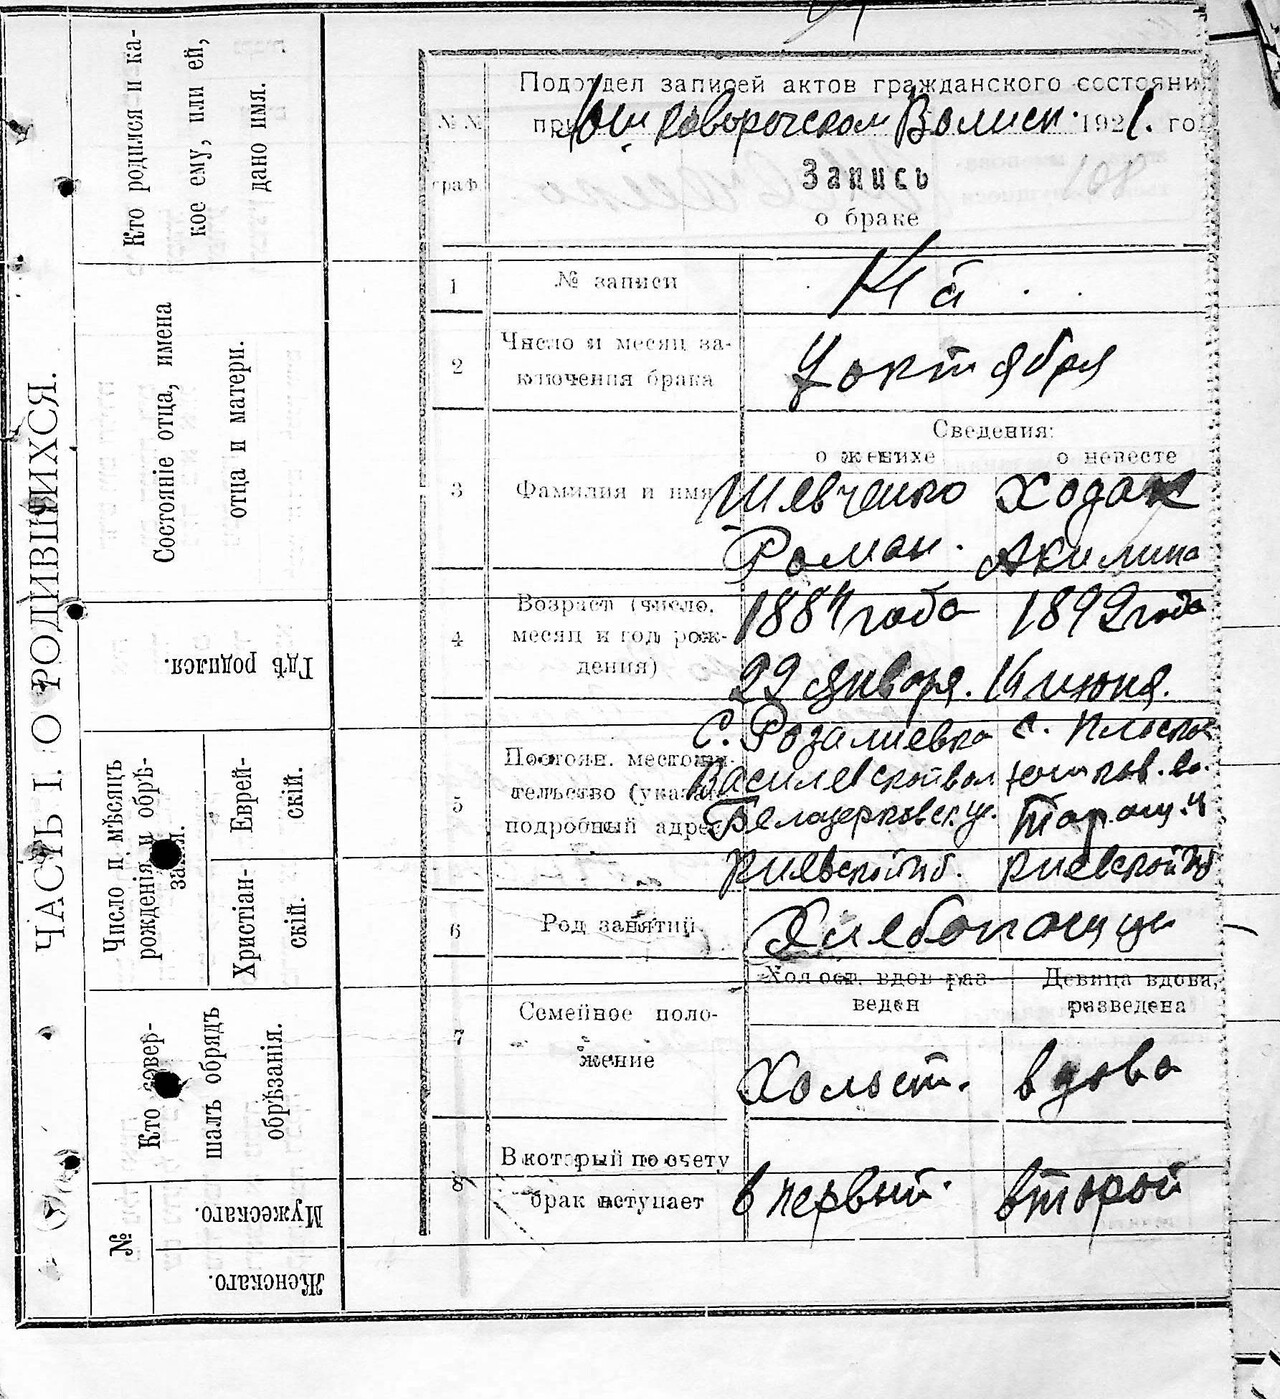 ЧАСТЬ I. О РОДИВШИХСЯ.
Кто родился и ка-
кое ему, или ей,
дано имя.
Состояніе отца, имена
отца и матери.
Гдѣ родился.
Число и мѣсяцъ
рожденія и обрѣ-
занія.
Еврей-
скій.
Христіан-
скій.
Кто совер-
шалъ обрядъ
обрѣзанія.
№
Мужескаго.
Женскаго.
Подотдел записей актов гражданского состояни
при Волисп. 1921. го
№№
граф.
Запись
о браке
1 № записи
2 Число и месяц за-
ключения брака
октября
Сведения:
о женихе о невесте
3 Фамилия и имя Шевченко Ходак
Роман. Акилина
4 Возраст (число,
месяц и год рож-
дения)
1884 года 1892 года
29 января. 14 июня.
5 Постоян. местожи-
тельство (указат.
подробный адрес
С. Розалиевка с. Плоска
Василевской вол. Юшков. во.
Белоцерковск. у. Таращ. у
Киевской губ. Киевской губ
6 Род занятий. Хлебопашцы
7 Семейное поло-
жение
Холост. вдов. раз-
веден
Девица вдова,
разведена
Холост. вдова
8 В который по счету
брак вступает
в первый. второй